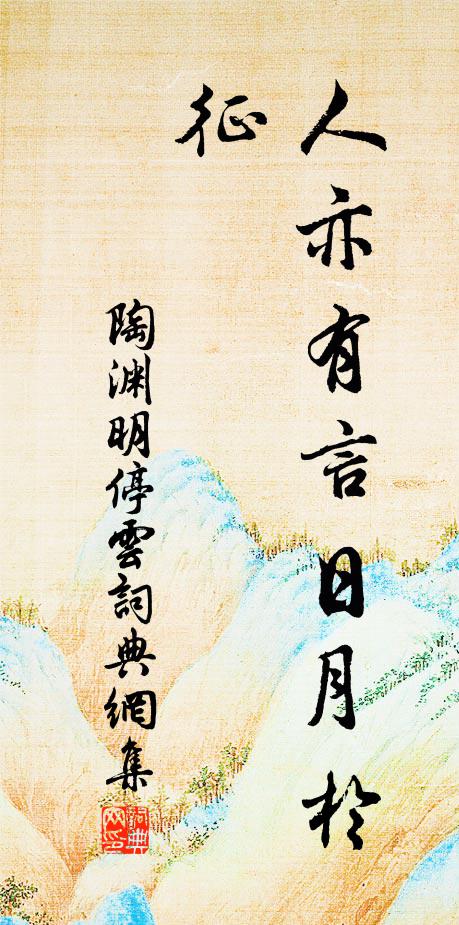 人亦有言日月於
征
陶渊明停雲詞典網集
詞典
网印